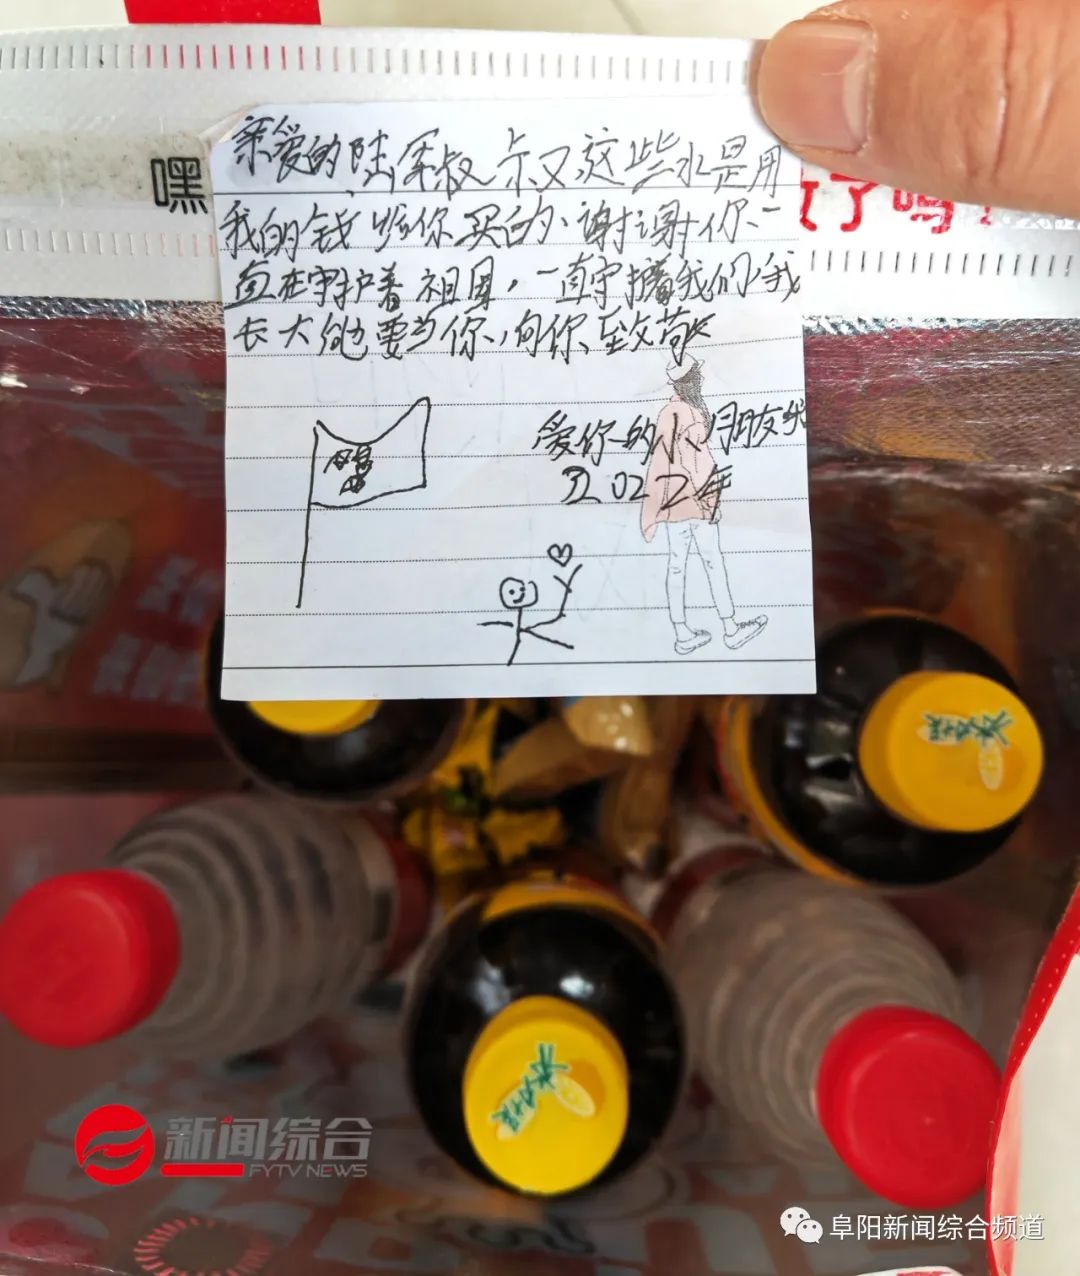 嘿
了吗?
亲爱的陆军叔叔,这些水是用
我的钱给你买的、谢谢你、一
直在守护着祖国,一直守护着我们,我
长大也要当你,向你致敬
爱你的小朋友
2022年
冰红
冰红
新闻综合
FYTV NEWS
阜阳新闻综合频道